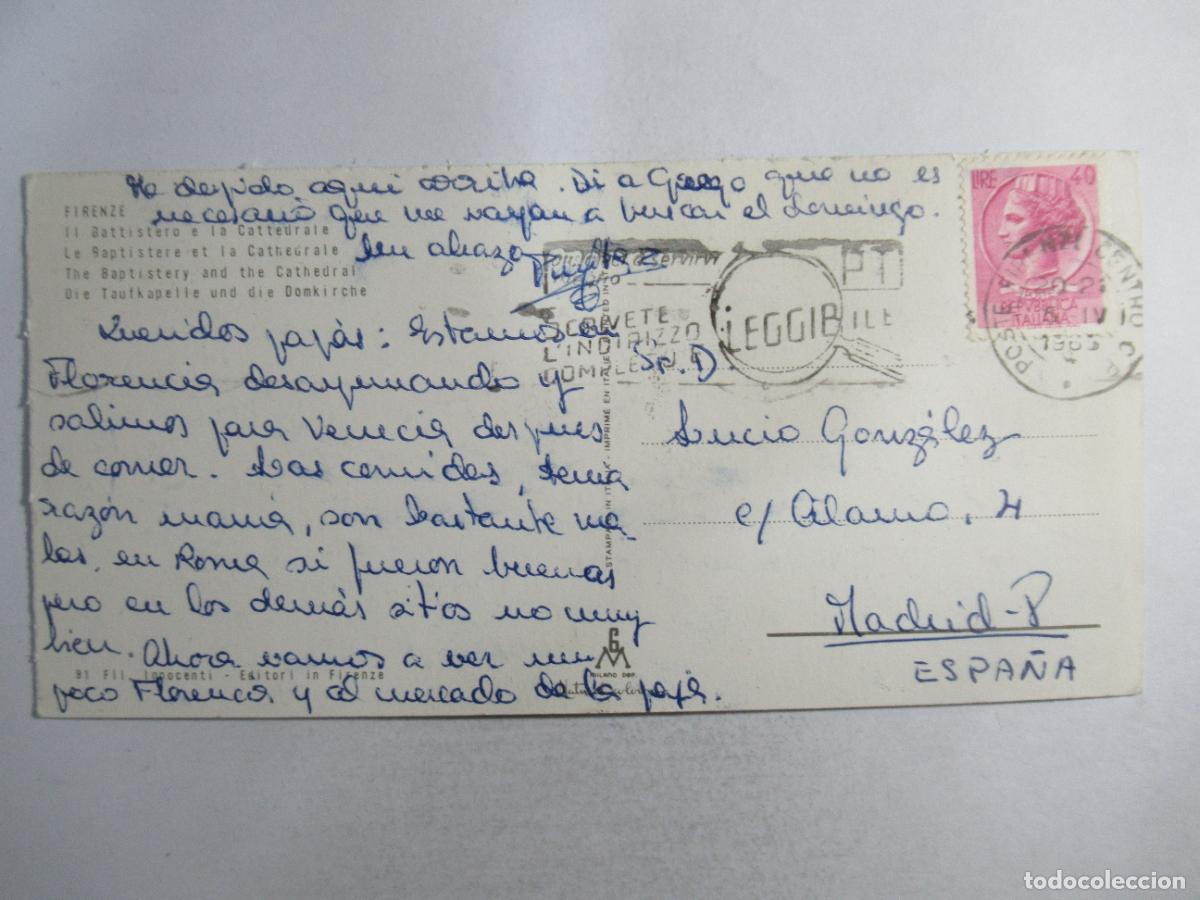 Me despido aqui arriba. Di a Goyo que no es
necesario que me vayan a buscar el domingo.
Un abrazo
FIRENZE
Il Battistero e la Cattedrale
Le Baptistere et la Cathedrale
The Baptistery and the Cathedral
Die Taufkapelle und die Domkirche
Queridos papás: Estamos en
Florencia desayunando y
salimos para Venecia despues
de comer. Las comidas, tenia
razón mamá, son bastante ma
las, en Roma si fueron buenas
pero en los demás sitios no muy
bien. Ahora vamos a ver un
poco Florencia y al mercado de la paja.
91 Fll. Innocenti - Editori in Firenze
STAMPATO IN ITALIA - IMPRIMÉ EN ITALIE - PRINTED IN
MILANO DEP.
SCRIVETE
L'INDIRIZZO
COMPLETO E
LEGGIBILE
PT
LIRE 40
REPVBBLICA
ITALIANA
POSTE
CENTRO
IV
Sr. D.
Lucio González
c/ Alamo, 4
Madrid-8
ESPAÑA
todocoleccion